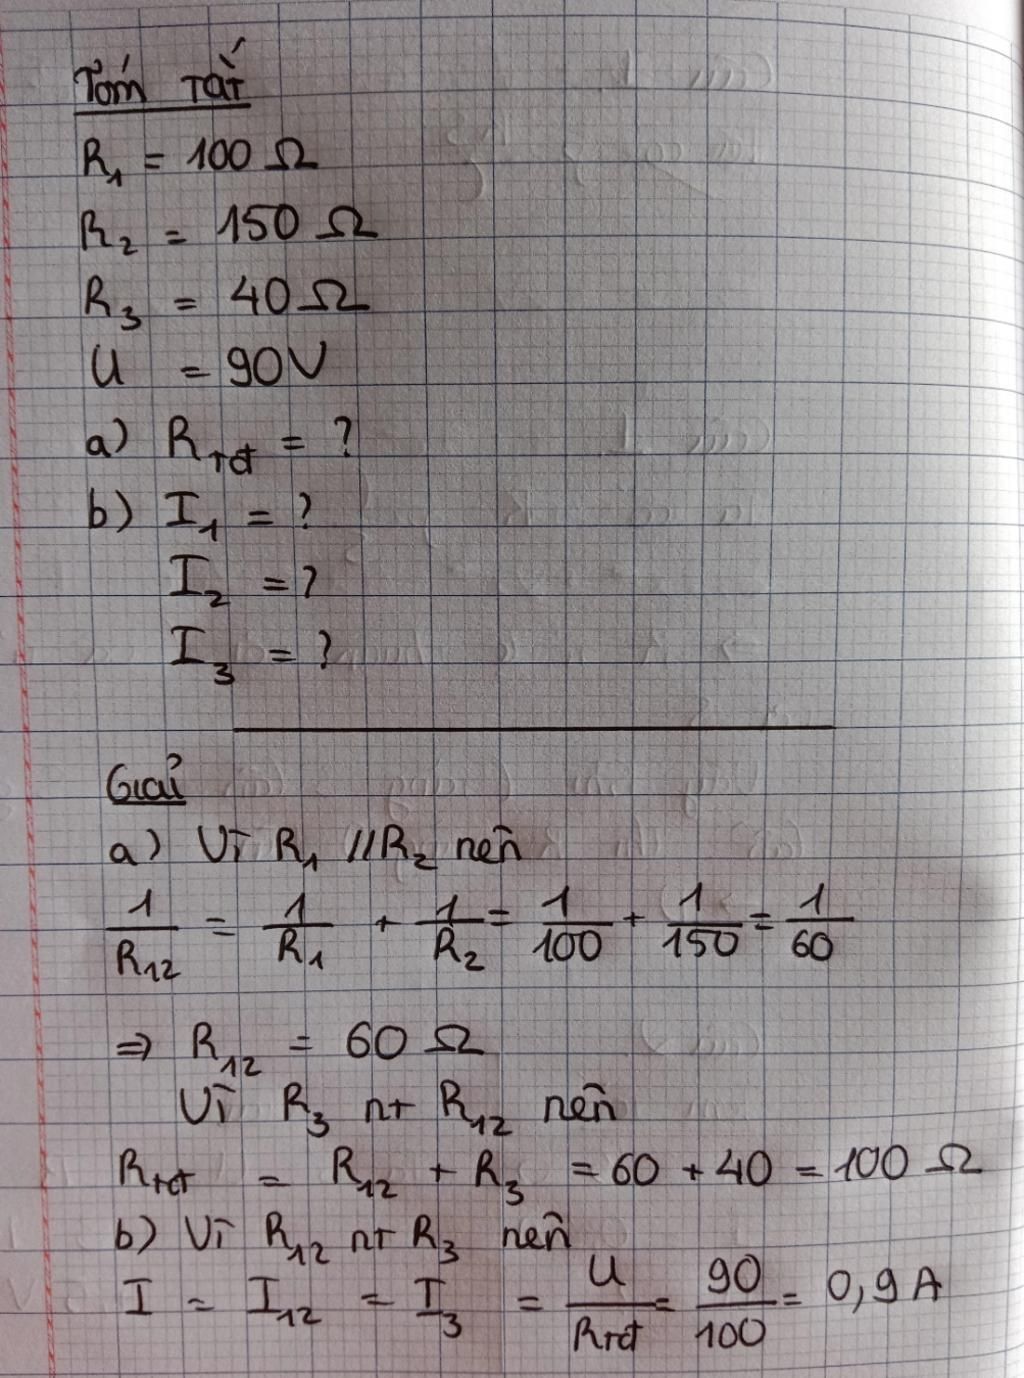 Tóm tắt
R₁ = 100 Ω
R₂ = 150 Ω
R₃ = 40 Ω
U = 90V
a) Rtđ = ?
b) I₁ = ?
I₂ = ?
I₃ = ?
Giải
a) Vì R₁ // R₂ nên
1/R₁₂ = 1/R₁ + 1/R₂ = 1/100 + 1/150 = 1/60
⇒ R₁₂ = 60 Ω
Vì R₃ nt R₁₂ nên
Rtđ = R₁₂ + R₃ = 60 + 40 = 100 Ω
b) Vì R₁₂ nt R₃ nên
I = I₁₂ = I₃ = U/Rtđ = 90/100 = 0,9 A